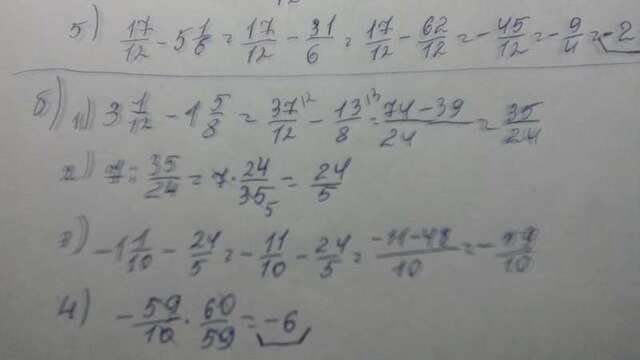 5) 17/12 - 5 1/6 = 17/12 - 31/6 = 17/12 - 62/12 = - 45/12 = - 9/4 = -2
б) 1) 3 1/12 - 1 5/8 = 37/12 - 13/8 = 74-39/24 = 35/24
2) 7 : 35/24 = 7 · 24/35 5 = 24/5
3) -1 1/10 - 24/5 = - 11/10 - 24/5 = -11-48/10 = - 59/10
4) - 59/10 · 60/59 = -6